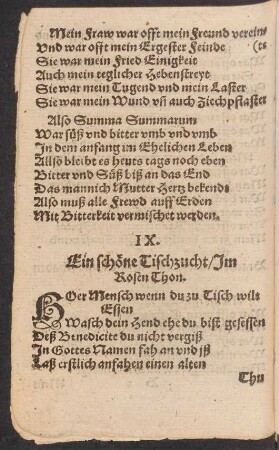 Mein Fraw war offt mein Freund vereins
Vnd war offt mein Ergester Feinde (tes
Sie war mein Fried Einigkeit
Auch mein teglicher Hebenstreyt
Sie war mein Tugend vnd mein Laster
Sie war mein Wund vñ auch Ziechpflaster
Also Summa Summarum
War süß vnd bitter vmb vnd vmb
In dem anfang im Ehelichen Leben
Allso bleibt es heuts tags noch eben
Bitter vnd Süß biß an das End
Das mannich Mutter Hertz bekend
Also muß alle Frewd auff Erden
Mit Bitterkeit vermischet werden.
IX.
Ein schöne Tischzucht/Im
Rosen Thon.
HOer Mensch wenn du zu Tisch wilt
Essen
Wasch dein Hend ehe du bist gesessen
Deß Benedicite du nicht vergiß
In Gottes Namen fah an vnd jß
Laß erstlich anfahen einen alten
Thu